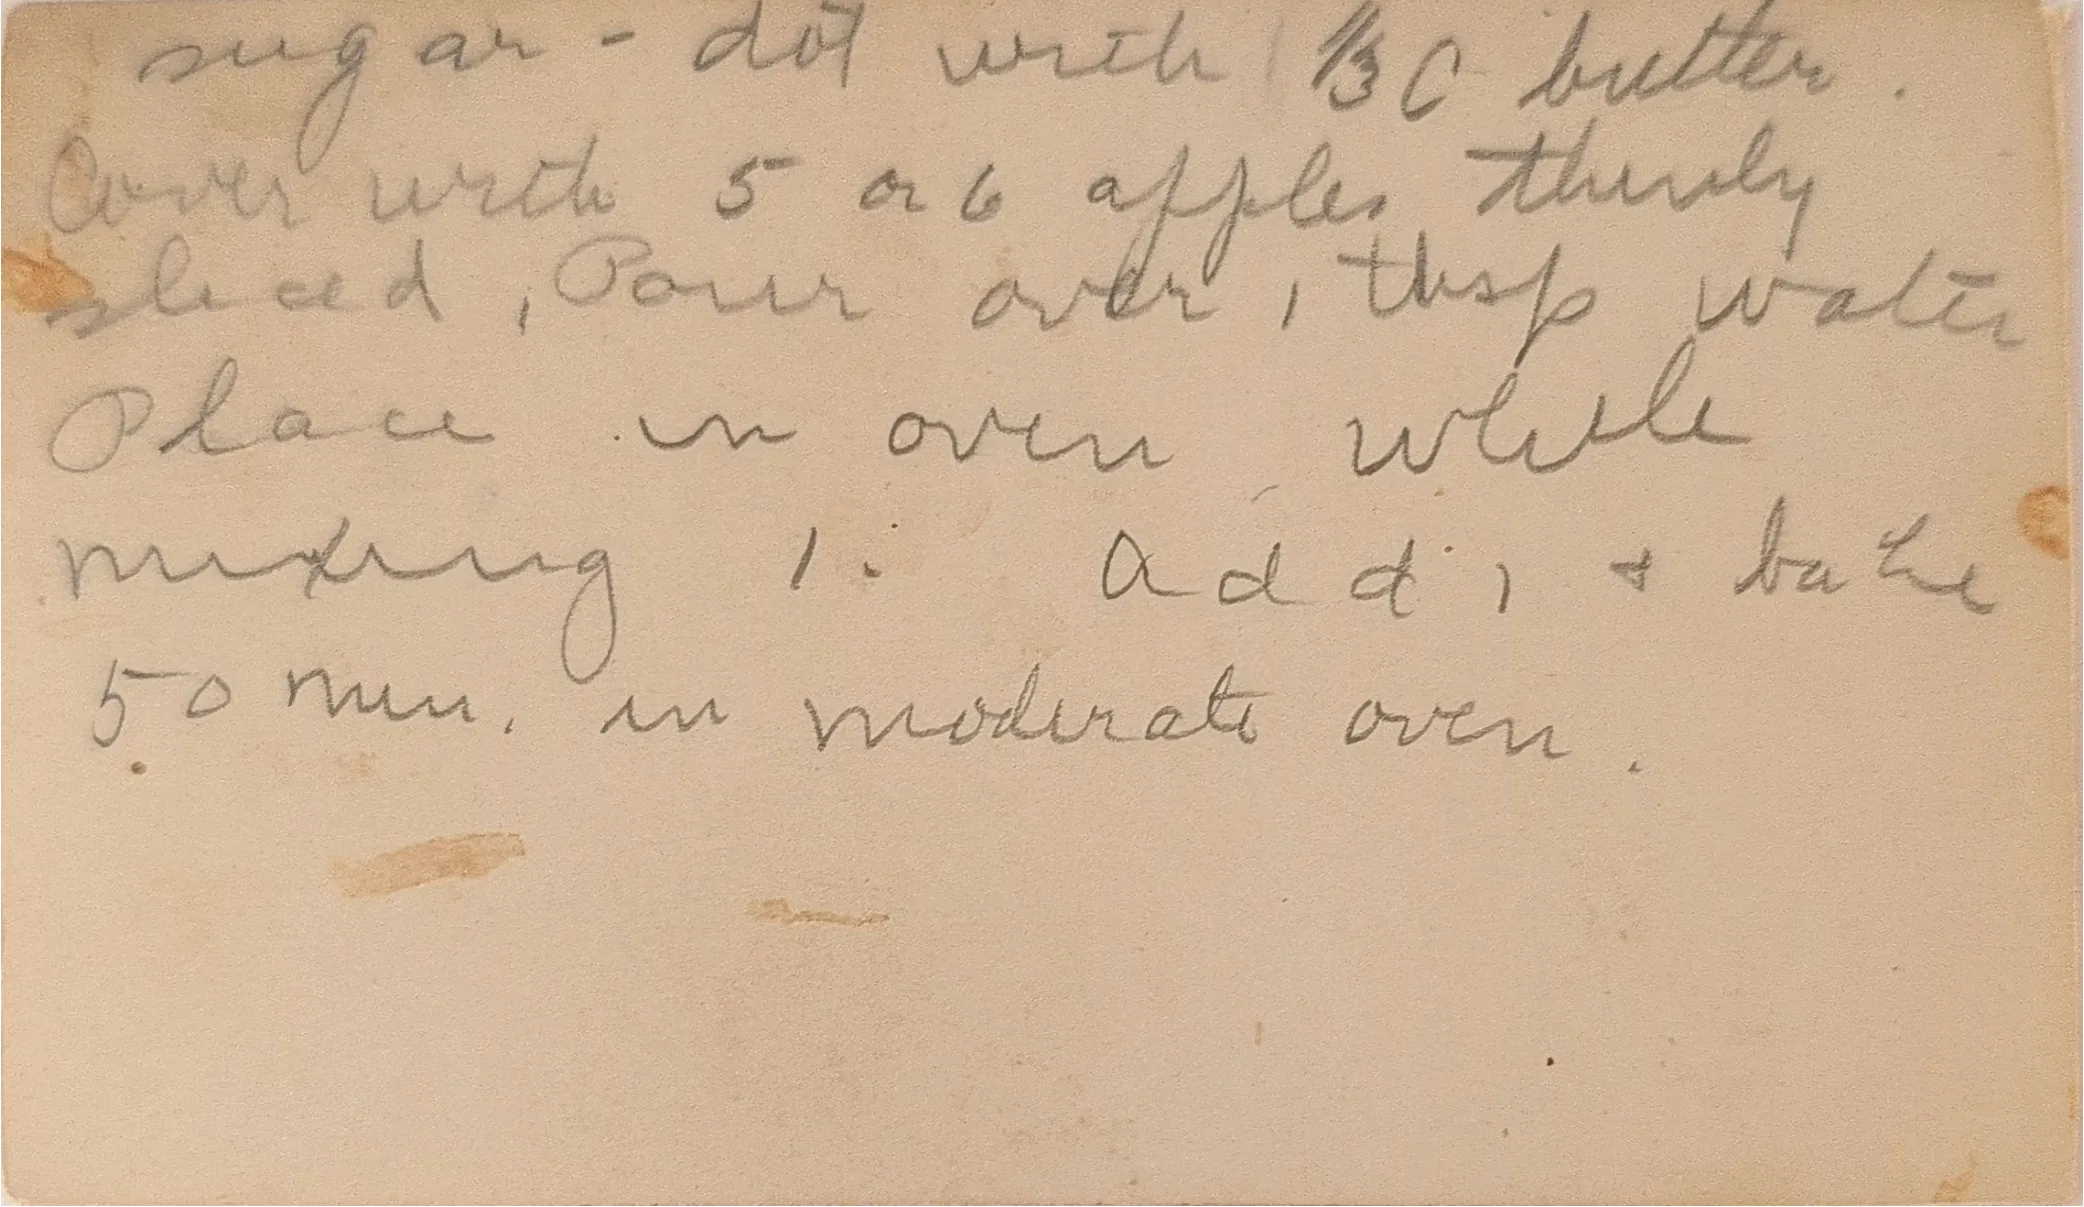 sugar - dot with 1/3 C butter.
Cover with 5 or 6 apples thinly
sliced, Pour over 1 tbsp water
Place in oven while
mixing 1. Add 1 + bake
50 min. in moderate oven.